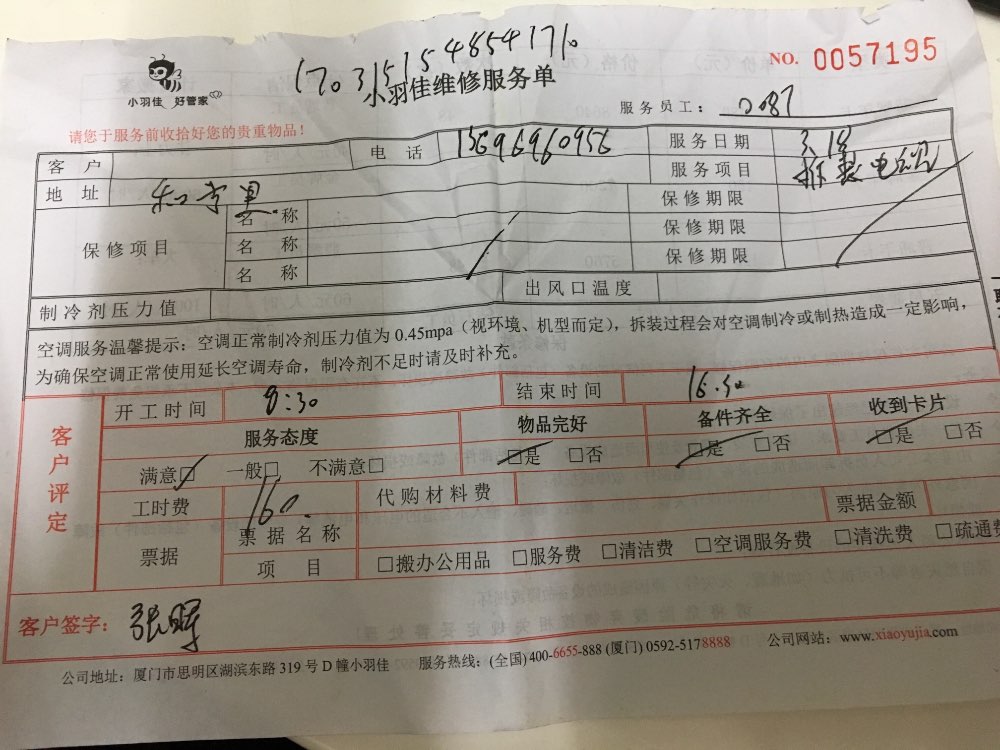 170315154854171○
NO. 0057195
小羽佳 好管家
小羽佳维修服务单
服务员工: 2087
请您于服务前收拾好您的贵重物品!
客户 电话 13696960956 服务日期 3.18
地址 服务项目 拆装电
保修项目 名称 保修期限
名称 保修期限
名称 保修期限
制冷剂压力值 出风口温度
空调服务温馨提示:空调正常制冷剂压力值为 0.45mpa(视环境、机型而定),拆装过程会对空调制冷或制热造成一定影响,
为确保空调正常使用延长空调寿命,制冷剂不足时请及时补充。
客户评定
开工时间 8:30 结束时间 16:30
服务态度 物品完好 备件齐全 收到卡片
满意□ 一般□ 不满意□ □是 □否 □是 □否 □是 □否
工时费 160. 代购材料费 票据金额
票据 票据名称
项目 □搬办公用品 □服务费 □清洁费 □空调服务费 □清洗费 □疏通费
客户签字: 张晖
公司地址:厦门市思明区湖滨东路 319 号 D 幢小羽佳 服务热线:(全国) 400-6655-888 (厦门) 0592-5178888 公司网站:www.xiaoyujia.com